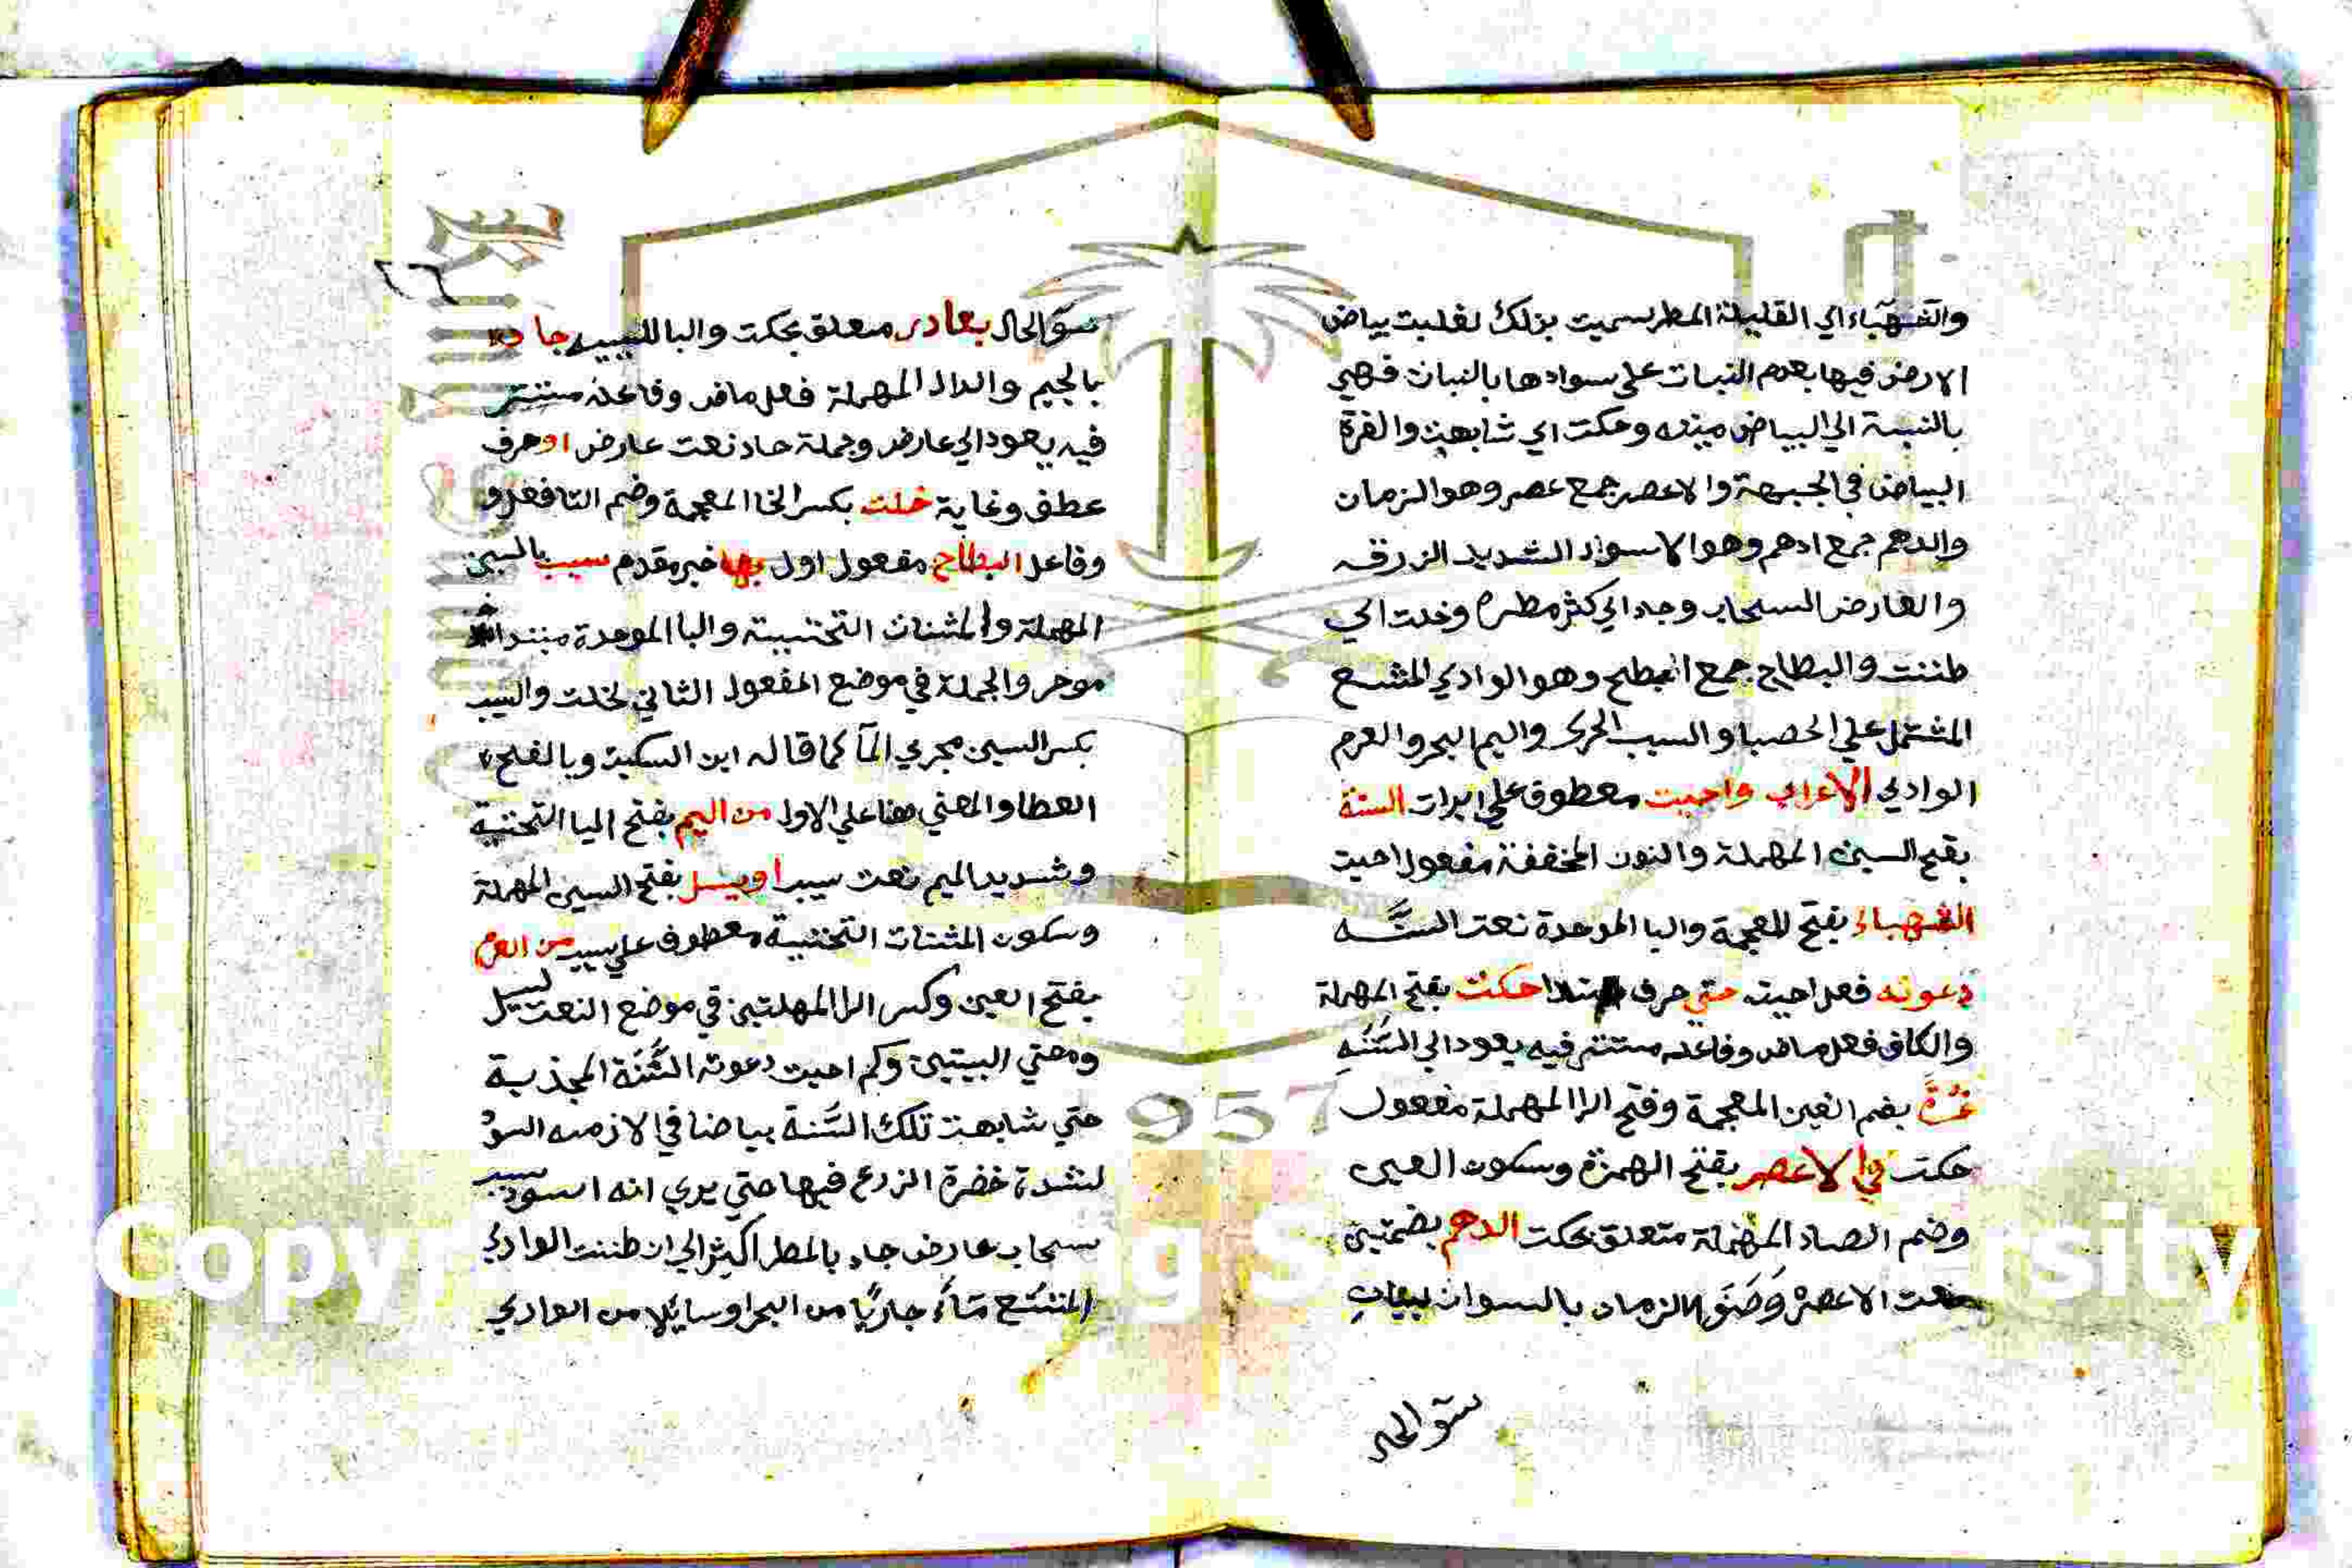 والشهباء اي القليلة المطر سميت بذلك لغلبت بياض
الارض فيها بعدم النبات على سوادها بالنبات فهي
بالنسبة الي البياض ميته وحكت اي شابهت والغرة
البياض في الجبهة والاعصر جمع عصر وهو الزمان
والدهم جمع ادهم وهو الاسواد الشديد الزرقه
والعارض السحاب وجاد اي كثر مطره وخلت اي
ظننت والبطاح جمع ابطح وهو الوادي المتسع
المشتمل علي الحصبا والسيب الجري واليم البحر والعرم
الوادي الاعراب واحيت معطوف علي ابرات السنة
بفتح السين المهملة والنون المخففة مفعول احيت
الشهباء بفتح المعجمة والبا الموحدة نعت السنه
دعوته فعل احيت حتي حرف ابتدا حكت بفتح المهملة
والكاف فعل ماض وفاعله مستتر فيه يعود الي السنه
غرة بضم الغين المعجمة وفتح الرا المهملة مفعول
حكت في الاعصر بفتح الهمزة وسكون العين
وضم الصاد المهملة متعلق بحكت الدهم بضمتين
نعت الاعصر وصف الزمان بالسوان لبيان
سوّ الحال
سوّ الحال بعادر متعلق بحكت والبا للسببيه جاد
بالجيم والدال المهملة فعل ماض وفاعله مستتر
فيه يعود الي عارض وجملة جاد نعت عارض او حرف
عطف وغاية خلت بكسر الخا المعجمة وضم التا فعل و
وفاعل البطاح مفعول اول بها خبر مقدم سيب بالسين
المهملة والمثنات التحتيية والبا الموحدة مبتدا
موخر والجملة في موضع المفعول الثاني لخلت والسيب
بكسر السين مجري المآ كما قاله ابن السكيت وبالفتح
العطا والمعني هنا علي الاول من اليم بفتح اليا التحتية
وشديد الميم نعت سيب او سيل بفتح السين المهملة
وسكون المثنات التحتيية معطوف علي سيب من العرم
بفتح العين وكسر الرا المهلتين في موضع النعت لسيل
ومعني البيتين وكم احيت دعوته السَّنَة المجذبة
حتي شابهت تلك السَّنة بياضا في الازمنه السوْ
لشدة خضرة الزرع فيها حتي يري انه اسود بسبب
سحاب عارض جاد بالمطر اكيثر الي ان ظننت الوادي
المتسع مآءً جاريًا من البحر او سايلا من الوادي